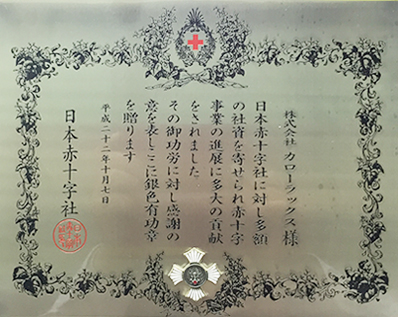 株式会社 カローラックス 様
日本赤十字社に対し多額
の社資を寄せられ赤十字
事業の進展に多大の貢献
をされました
その御功労に対し感謝の
意を表しここに銀色有功章
を贈ります
平成二十二年十月七日
日本赤十字社